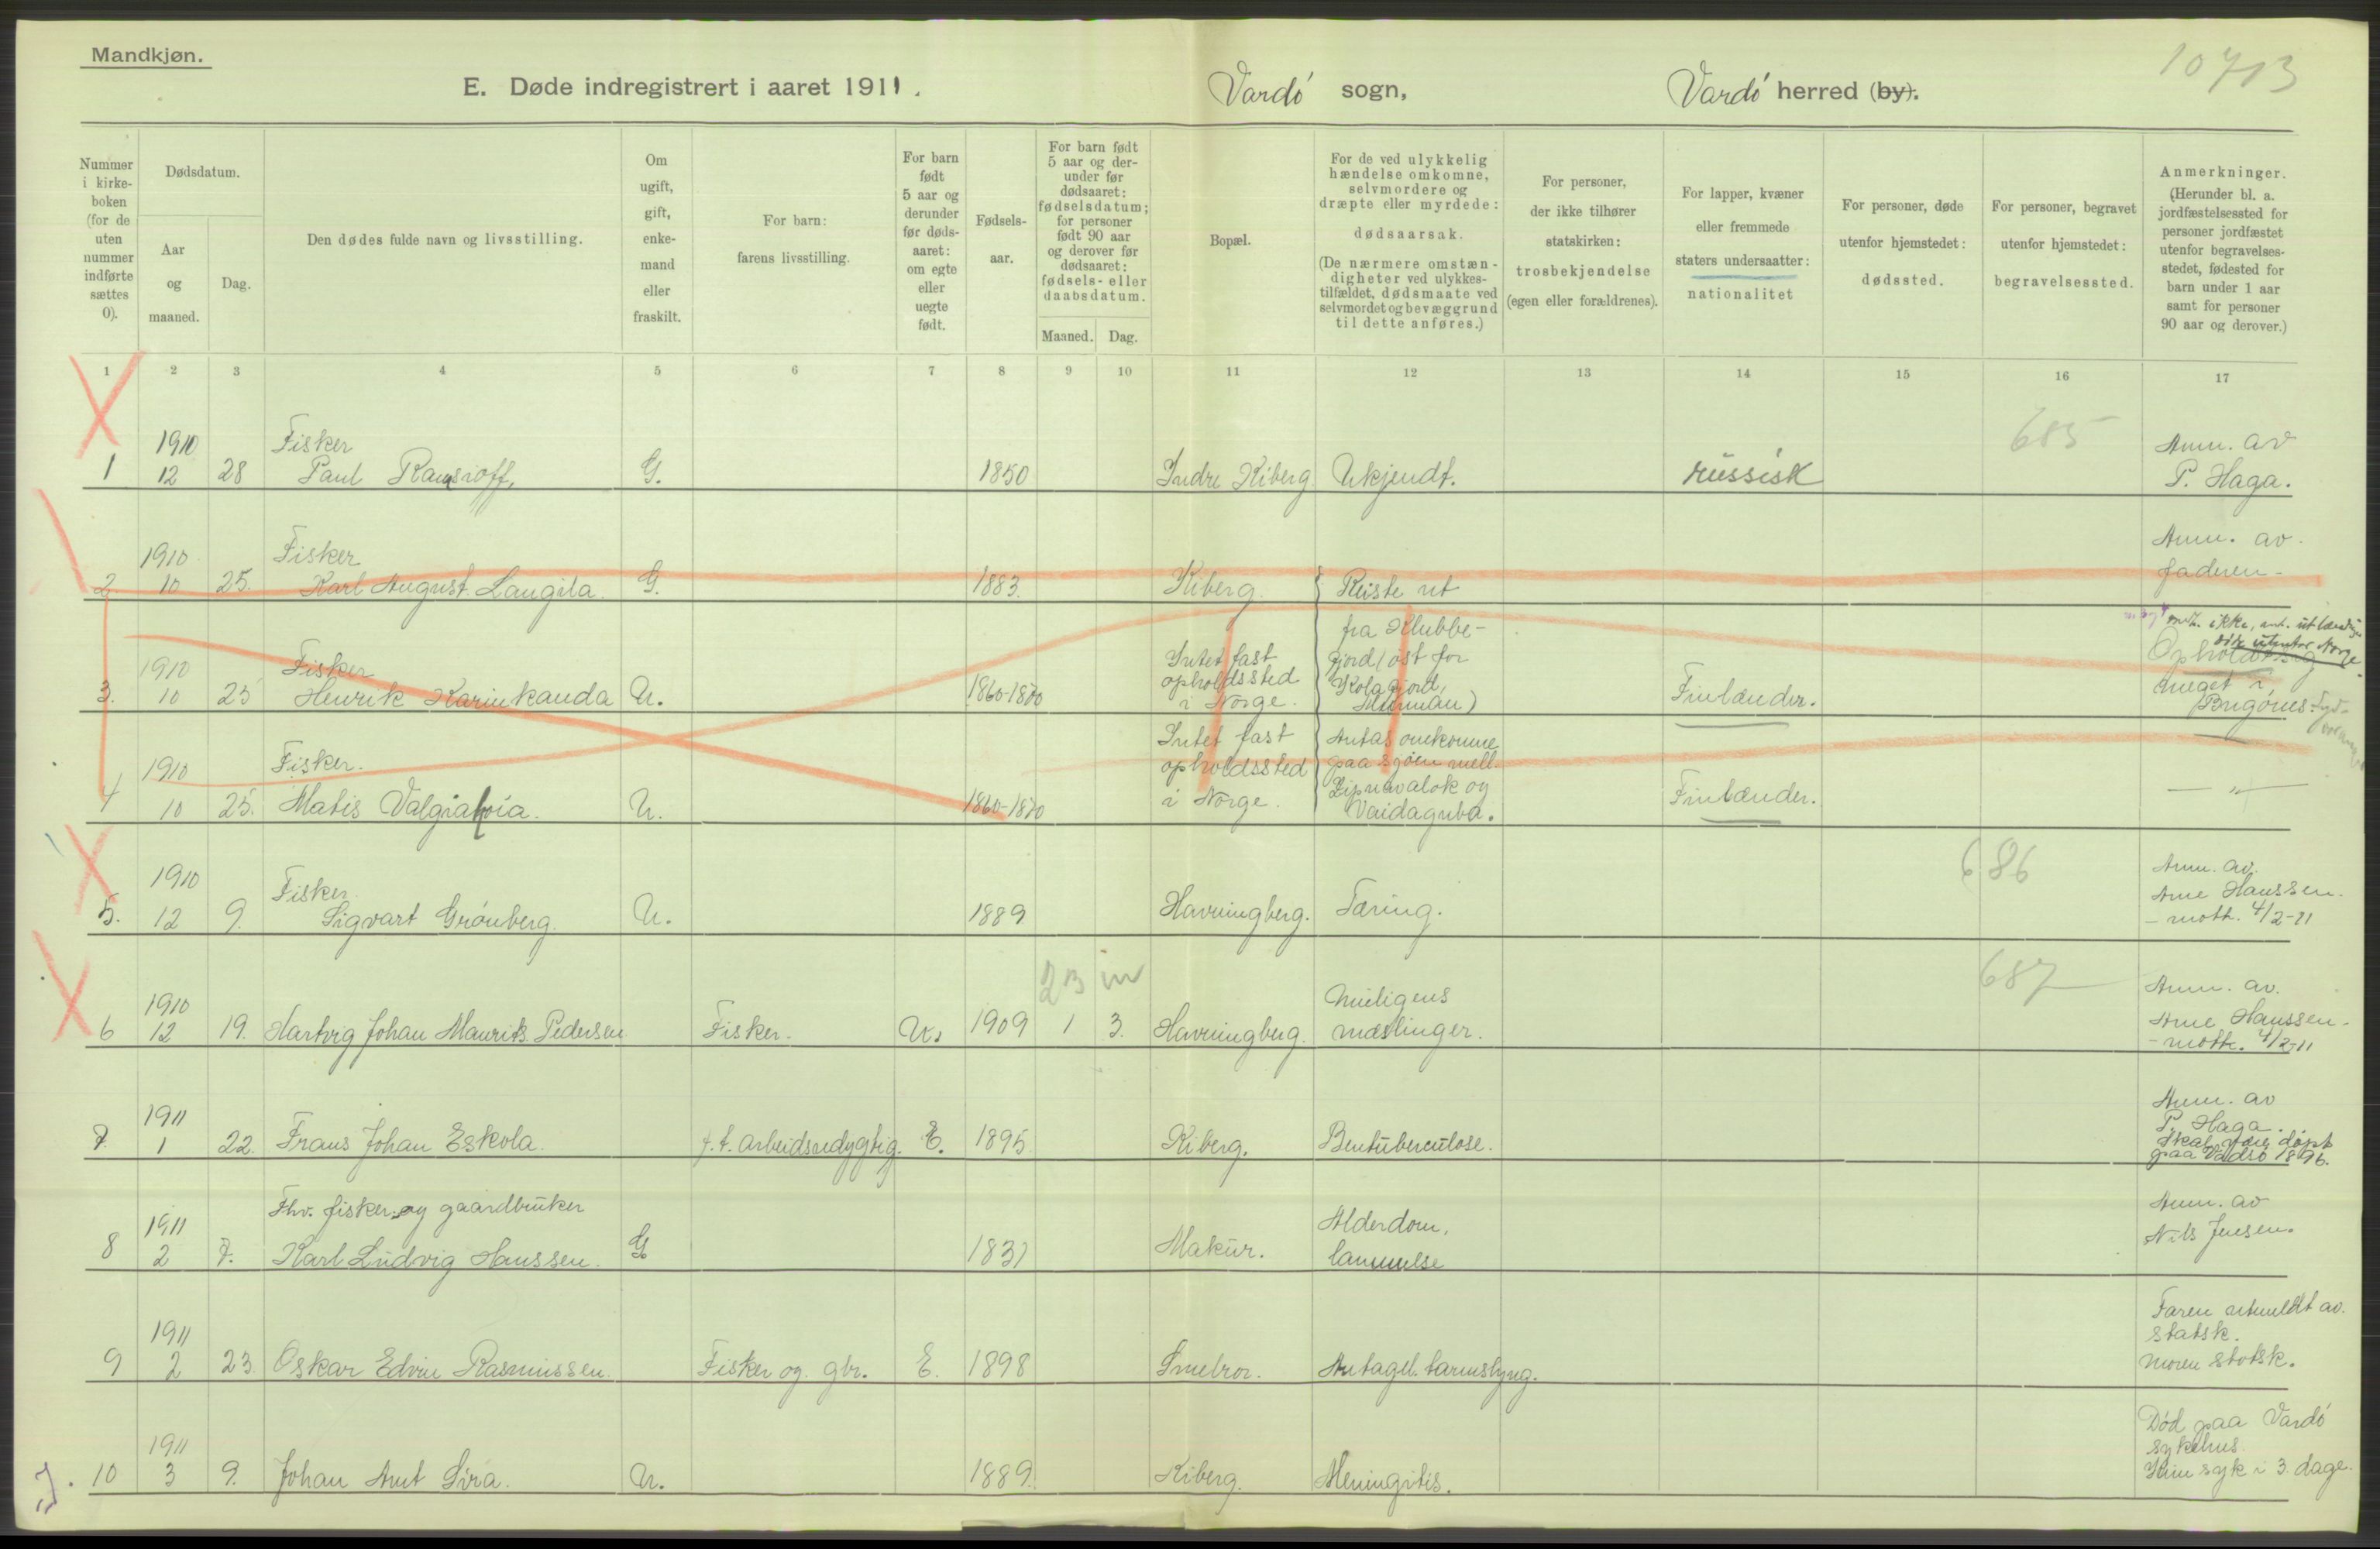 Mandkjøn.
10713
E. Døde indregistrert i aaret 1911.
Vardö sogn,
Vardö herred (by).
Nummer
i kirke-
boken
(for de
uten
nummer
indførte
sættes
0).
Dødsdatum.
Aar
og
maaned.
Dag.
Den dødes fulde navn og livsstilling.
Om
ugift,
gift,
enke-
mand
eller
fraskilt.
For barn:
farens livsstilling.
For barn
født
5 aar og
derunder
før døds-
aaret:
om egte
eller
uegte
født.
Fødsels-
aar.
For barn født
5 aar og der-
under før
dødsaaret:
fødselsdatum;
for personer
født 90 aar
og derover før
dødsaaret:
fødsels- eller
daabsdatum.
Maaned. Dag.
Bopæl.
For de ved ulykkelig
hændelse omkomne,
selvmordere og
dræpte eller myrdede:
dødsaarsak.
(De nærmere omstæn-
digheter ved ulykkes-
tilfældet, dødsmaate ved
selvmordet og bevæggrund
til dette anføres.)
For personer,
der ikke tilhører
statskirken:
trosbekjendelse
(egen eller forældrenes).
For lapper, kvæner
eller fremmede
staters undersaatter:
nationalitet
For personer, døde
utenfor hjemstedet:
dødssted.
For personer, begravet
utenfor hjemstedet:
begravelsessted.
Anmerkninger.
(Herunder bl. a.
jordfæstelsessted for
personer jordfæstet
utenfor begravelses-
stedet, fødested for
barn under 1 aar
samt for personer
90 aar og derover.)
1 2 3 4 5 6 7 8 9 10 11 12 13 14 15 16 17
1910 Fisker 685 Anm. av
1 12 28 Paul G. 1850 Indre Kiberg Ukjendt. russisk P. Haga.
1910 Fisker Anm. av
2 10 25. Karl August Laugila. G. 1883. Kiberg. Reiste ut faderen-
fra Klubbe-
fjord (öst for
Kolafjord,
Murman)
medt. ikke, ant. utlænding
döde utenfor Norge.
1910 Fisker Intet fast Opholdt sig
3. 10 25 Henrik Karinkanda U. 1860-1870 opholdssted i Norge. Finlænder. meget i
Bugönes
1910 Fisker. Intet fast Antas omkomne
4 10 25. Matis U. 1860-1870 opholdssted paa sjöen mell.
i Norge. Zipnavalok og Finlænder. — " —
Vaidaguba.
1910 Fisker. 686 Anm. av.
5. 12 9. Sigvart Grönberg. U. 1889 Havningberg. Tæring. Arne Hanssen.
- mott. 4/2-11
23 m 687 Anm. av.
1910 Muligens Arne Hanssen-
6 12 19. Hartvig Johan Maurits Pedersen Fisker. U. 1909 1 3. Havningberg. mæslinger. - mott. 4/2-11
1911 Anm. av
7. 1 22. Frans Johan Eskola. f. t. arbeidsudygtig. E. 1895 Kiberg. Bentuberculose. P. Haga.
Skal være döpt
paa Vadsö 1896.
1911 Fhv. fisker og gaardbruker Alderdom, Anm. av
8 2 7. Karl Ludvig Hanssen. G 1831 Makur. lammelse Nils Jensen.
1911 Faren utmeldt av.
9 2 23. Oskar Edvin Rasmussen. Fisker og gbr. E. 1898 Smelror. Antagel. tarmslyng. statsk.
moren statsk.
1911 Död paa Vardö
10 3 9. Johan Arnt Sira. U. 1889. Kiberg. Meningitis. sykehus.
Kun syk i 3. dage.